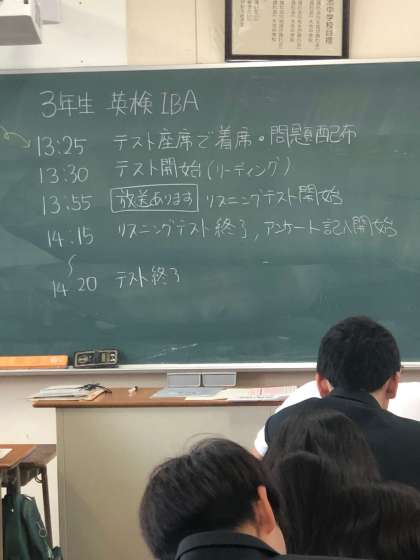 中学校目標
3年生 英検IBA
13:25 テスト座席で着席・問題配布
13:30 テスト開始(リーディング)
13:55 放送あります リスニングテスト開始
14:15 リスニングテスト終了,アンケート記入開始
〜
14:20 テスト終了